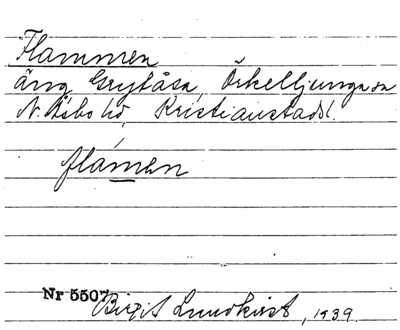 Flammen
äng Grytåsa, Örkelljunga sn
N. Åsbo hd, Kristianstads l.
flámen
Nr 5507
Birgit Lundkvist, 1939.